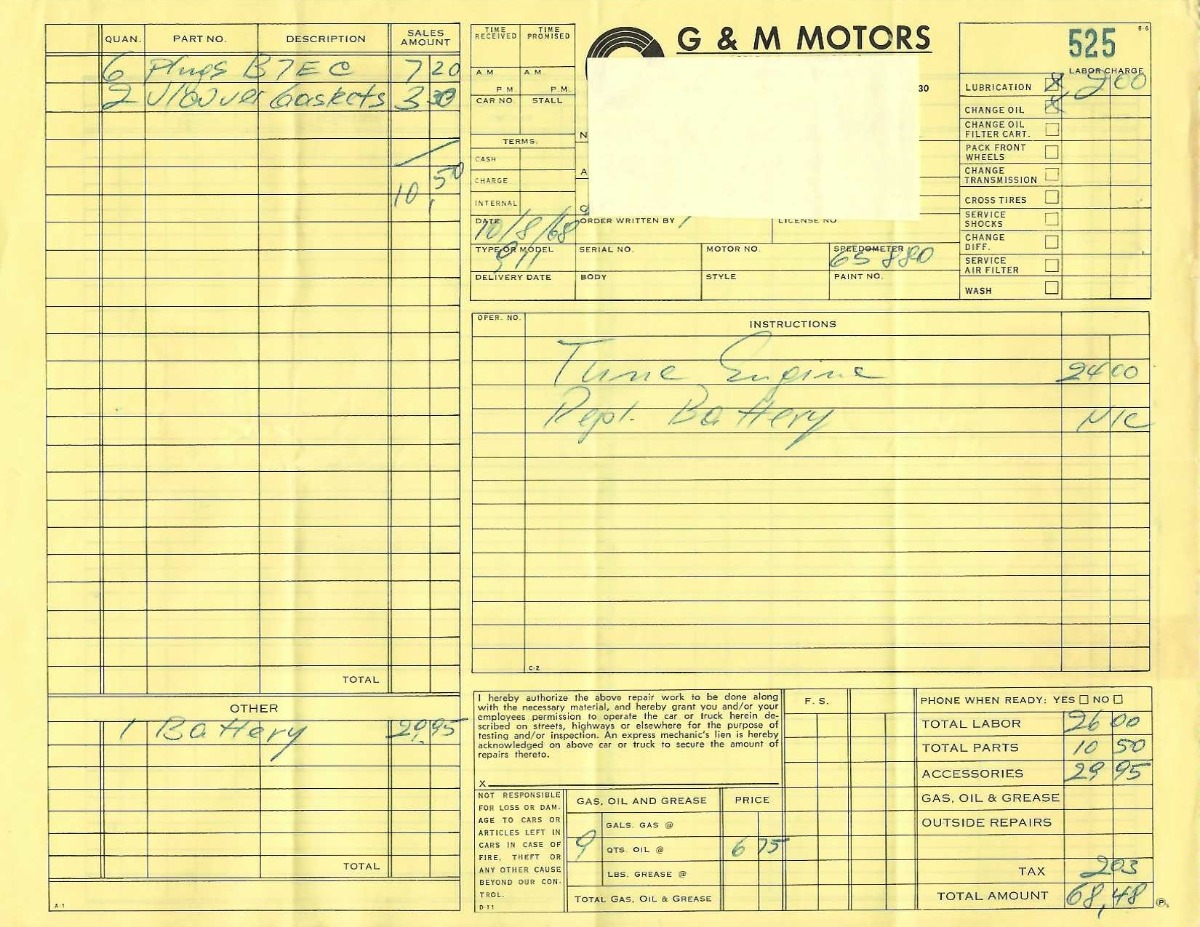 QUAN. PART NO. DESCRIPTION SALES AMOUNT
6 Plugs B7EC 7 20
2 V/Cover Gaskets 3 30
10,50
TOTAL
OTHER
1 Battery 29.95
TOTAL
A-1
TIME RECEIVED TIME PROMISED
A M A M.
P M P M.
CAR NO. STALL
TERMS:
CASH
CHARGE
INTERNAL
G & M MOTORS
30
N
A
DATE 10/8/68 ORDER WRITTEN BY LICENSE NO
TYPE OR MODEL 911 SERIAL NO. MOTOR NO. SPEEDOMETER 65880
DELIVERY DATE BODY STYLE PAINT NO.
525
LABOR CHARGE
LUBRICATION X 200
CHANGE OIL X
CHANGE OIL FILTER CART.
PACK FRONT WHEELS
CHANGE TRANSMISSION
CROSS TIRES
SERVICE SHOCKS
CHANGE DIFF.
SERVICE AIR FILTER
WASH
OPER. NO. INSTRUCTIONS
Tune Engine 24 00
Repl. Battery N/C
C-2
I hereby authorize the above repair work to be done along
with the necessary material, and hereby grant you and/or your
employees permission to operate the car or truck herein de-
scribed on streets, highways or elsewhere for the purpose of
testing and/or inspection. An express mechanic's lien is hereby
acknowledged on above car or truck to secure the amount of
repairs thereto.
X
NOT RESPONSIBLE
FOR LOSS OR DAM-
AGE TO CARS OR
ARTICLES LEFT IN
CARS IN CASE OF
FIRE, THEFT OR
ANY OTHER CAUSE
BEYOND OUR CON-
TROL.
D-11
GAS, OIL AND GREASE PRICE
GALS. GAS @
9 QTS. OIL @ 6 75
LBS. GREASE @
TOTAL GAS, OIL & GREASE
F. S.
PHONE WHEN READY: YES NO
TOTAL LABOR 26 00
TOTAL PARTS 10 50
ACCESSORIES 29 95
GAS, OIL & GREASE
OUTSIDE REPAIRS
TAX 203
TOTAL AMOUNT 68,48